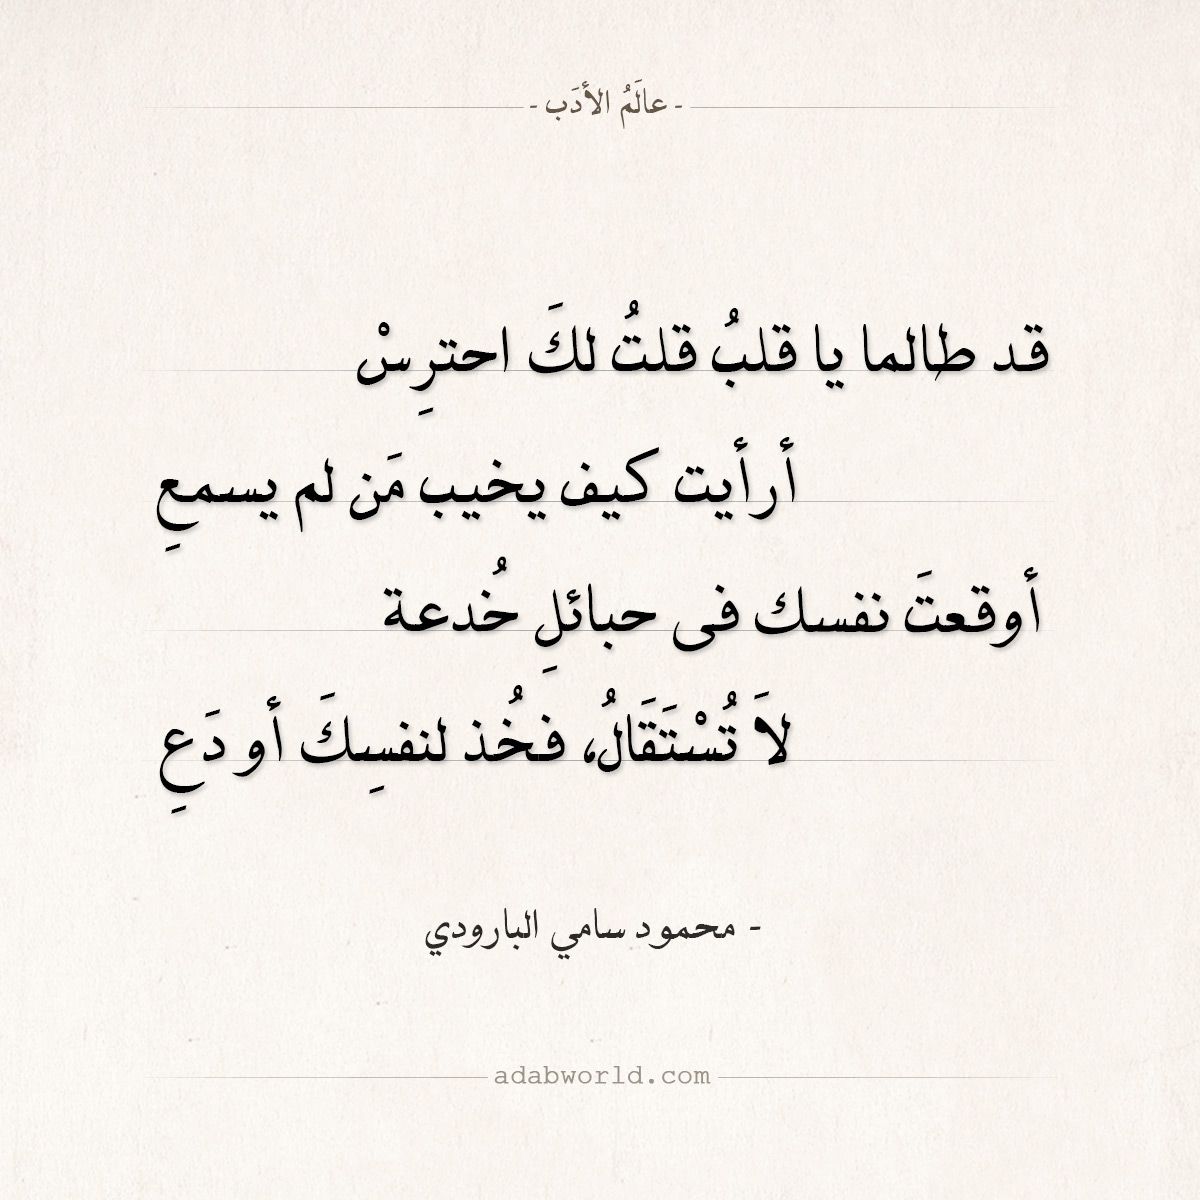 - عالَمُ الأدَب -
قد طالما يا قلبُ قلتُ لكَ احترِسْ
أرأيت كيف يخيب مَن لم يسمعِ
أوقعتَ نفسك فى حبائلِ خُدعة
لاَ تُسْتَقَالُ، فخُذ لنفسِكَ أو دَعِ
- محمود سامي البارودي
adabworld.com